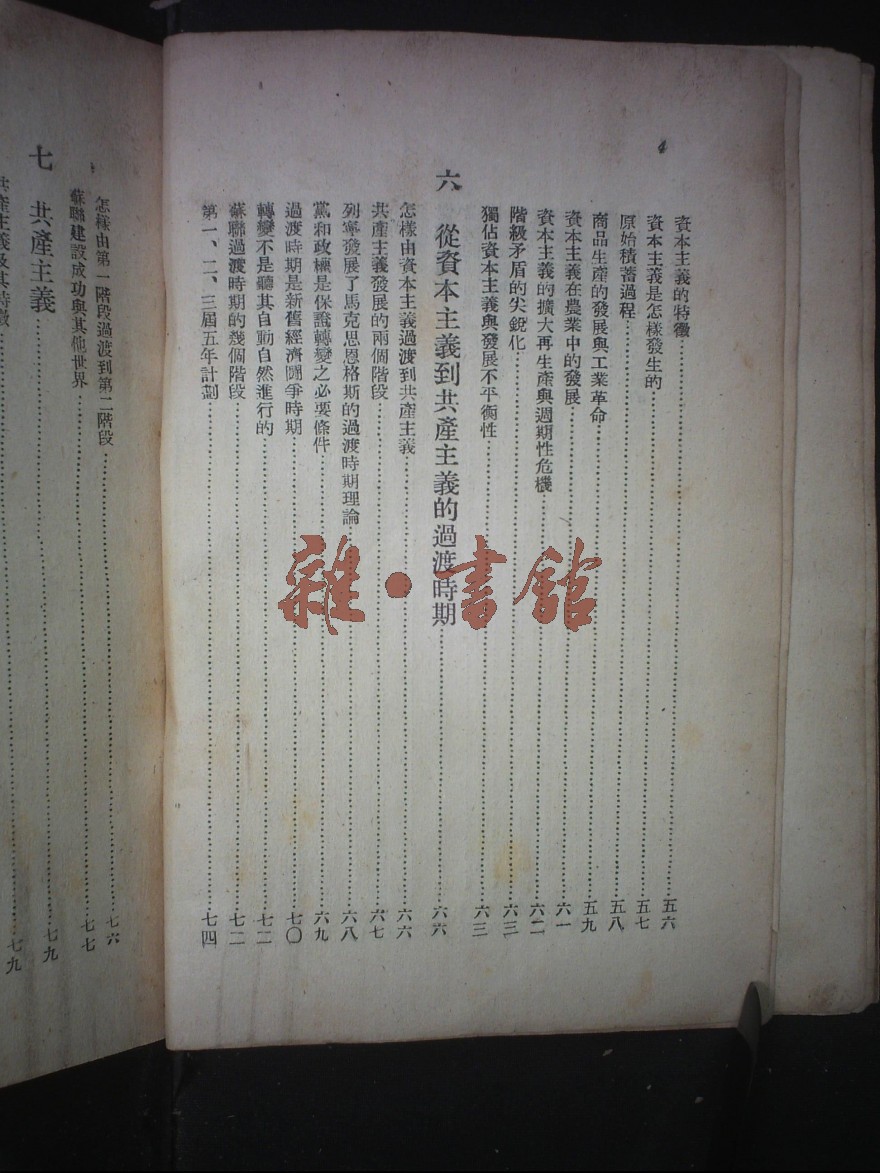 4
資本主義的特徵……五六
資本主義是怎樣發生的……五七
原始積蓄過程……五八
商品生產的發展與工業革命……五九
資本主義在農業中的發展……六一
資本主義的擴大再生產與週期性危機……六二
階級矛盾的尖銳化……六三
獨佔資本主義與發展不平衡性……六三
六 從資本主義到共產主義的過渡時期……六六
怎樣由資本主義過渡到共產主義……六六
共產主義發展的兩個階段……六七
列寧發展了馬克思恩格斯的過渡時期理論……六八
黨和政權是保證轉變之必要條件……六九
過渡時期是新舊經濟鬪爭時期……七〇
轉變不是聽其自動自然進行的……七二
蘇聯過渡時期的幾個階段……七二
第一、二、三屆五年計劃……七四
怎樣由第一階段過渡到第二階段……七六
蘇聯建設成功與其他世界……七七
七 共產主義……七九
共產主義及其特徵……七九
雜·書館